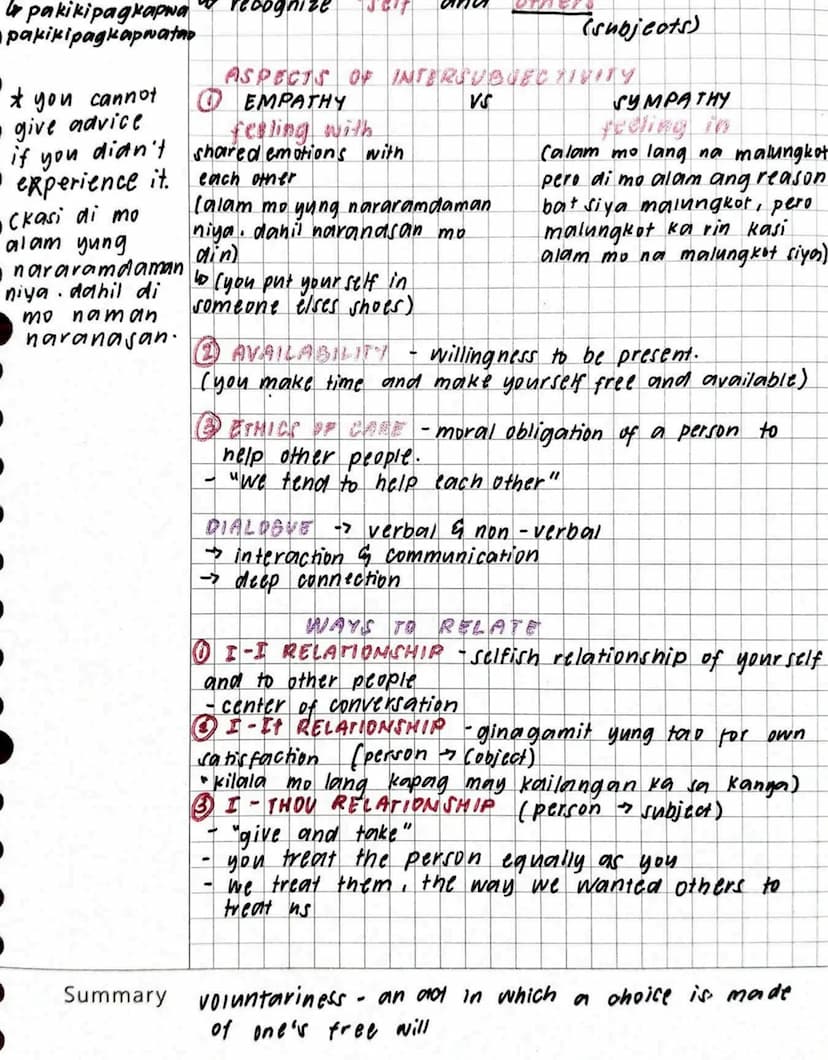 ↳ pakikipagkapwa
pakikipagkapwatao
* you cannot
give advice
if you didn't
experience it.
(kasi di mo
alam yung
nararamdaman
niya. dahil di
mo naman
naranasan.
↳ recognize "self" and others
(subjects)
ASPECTS OF INTERSUBJECTIVITY
① EMPATHY VS SYMPATHY
feeling with
shared emotions with
each other
(alam mo yung nararamdaman
niya. dahil naranasan mo
din)
↳ (you put yourself in
someone elses shoes)
feeling in
(alam mo lang na malungkot
pero di mo alam ang reason
bat siya malungkot, pero
malungkot ka rin kasi
alam mo na malungkot siya)
② AVAILABILITY - willingness to be present.
(you make time and make yourself free and available)
③ ETHICS OF CARE - moral obligation of a person to
help other people.
- "we tend to help each other"
DIALOGUE -> verbal & non-verbal
→ interaction & communication
→ deep connection
WAYS TO RELATE
① I-I RELATIONSHIP - selfish relationship of yourself
and to other people
- center of conversation
② I-It RELATIONSHIP - ginagamit yung tao for own
satisfaction (person → (object)
• kilala mo lang kapag may kailangan ka sa kanya)
③ I-THOU RELATIONSHIP (person → subject)
- "give and take"
- you treat the person equally as you
- we treat them, the way we wanted others to
treat us
Summary
voluntariness - an act in which a choice is made
of one's free will